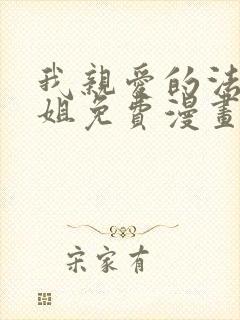 我親愛的法
姐免費漫畫
宋家有